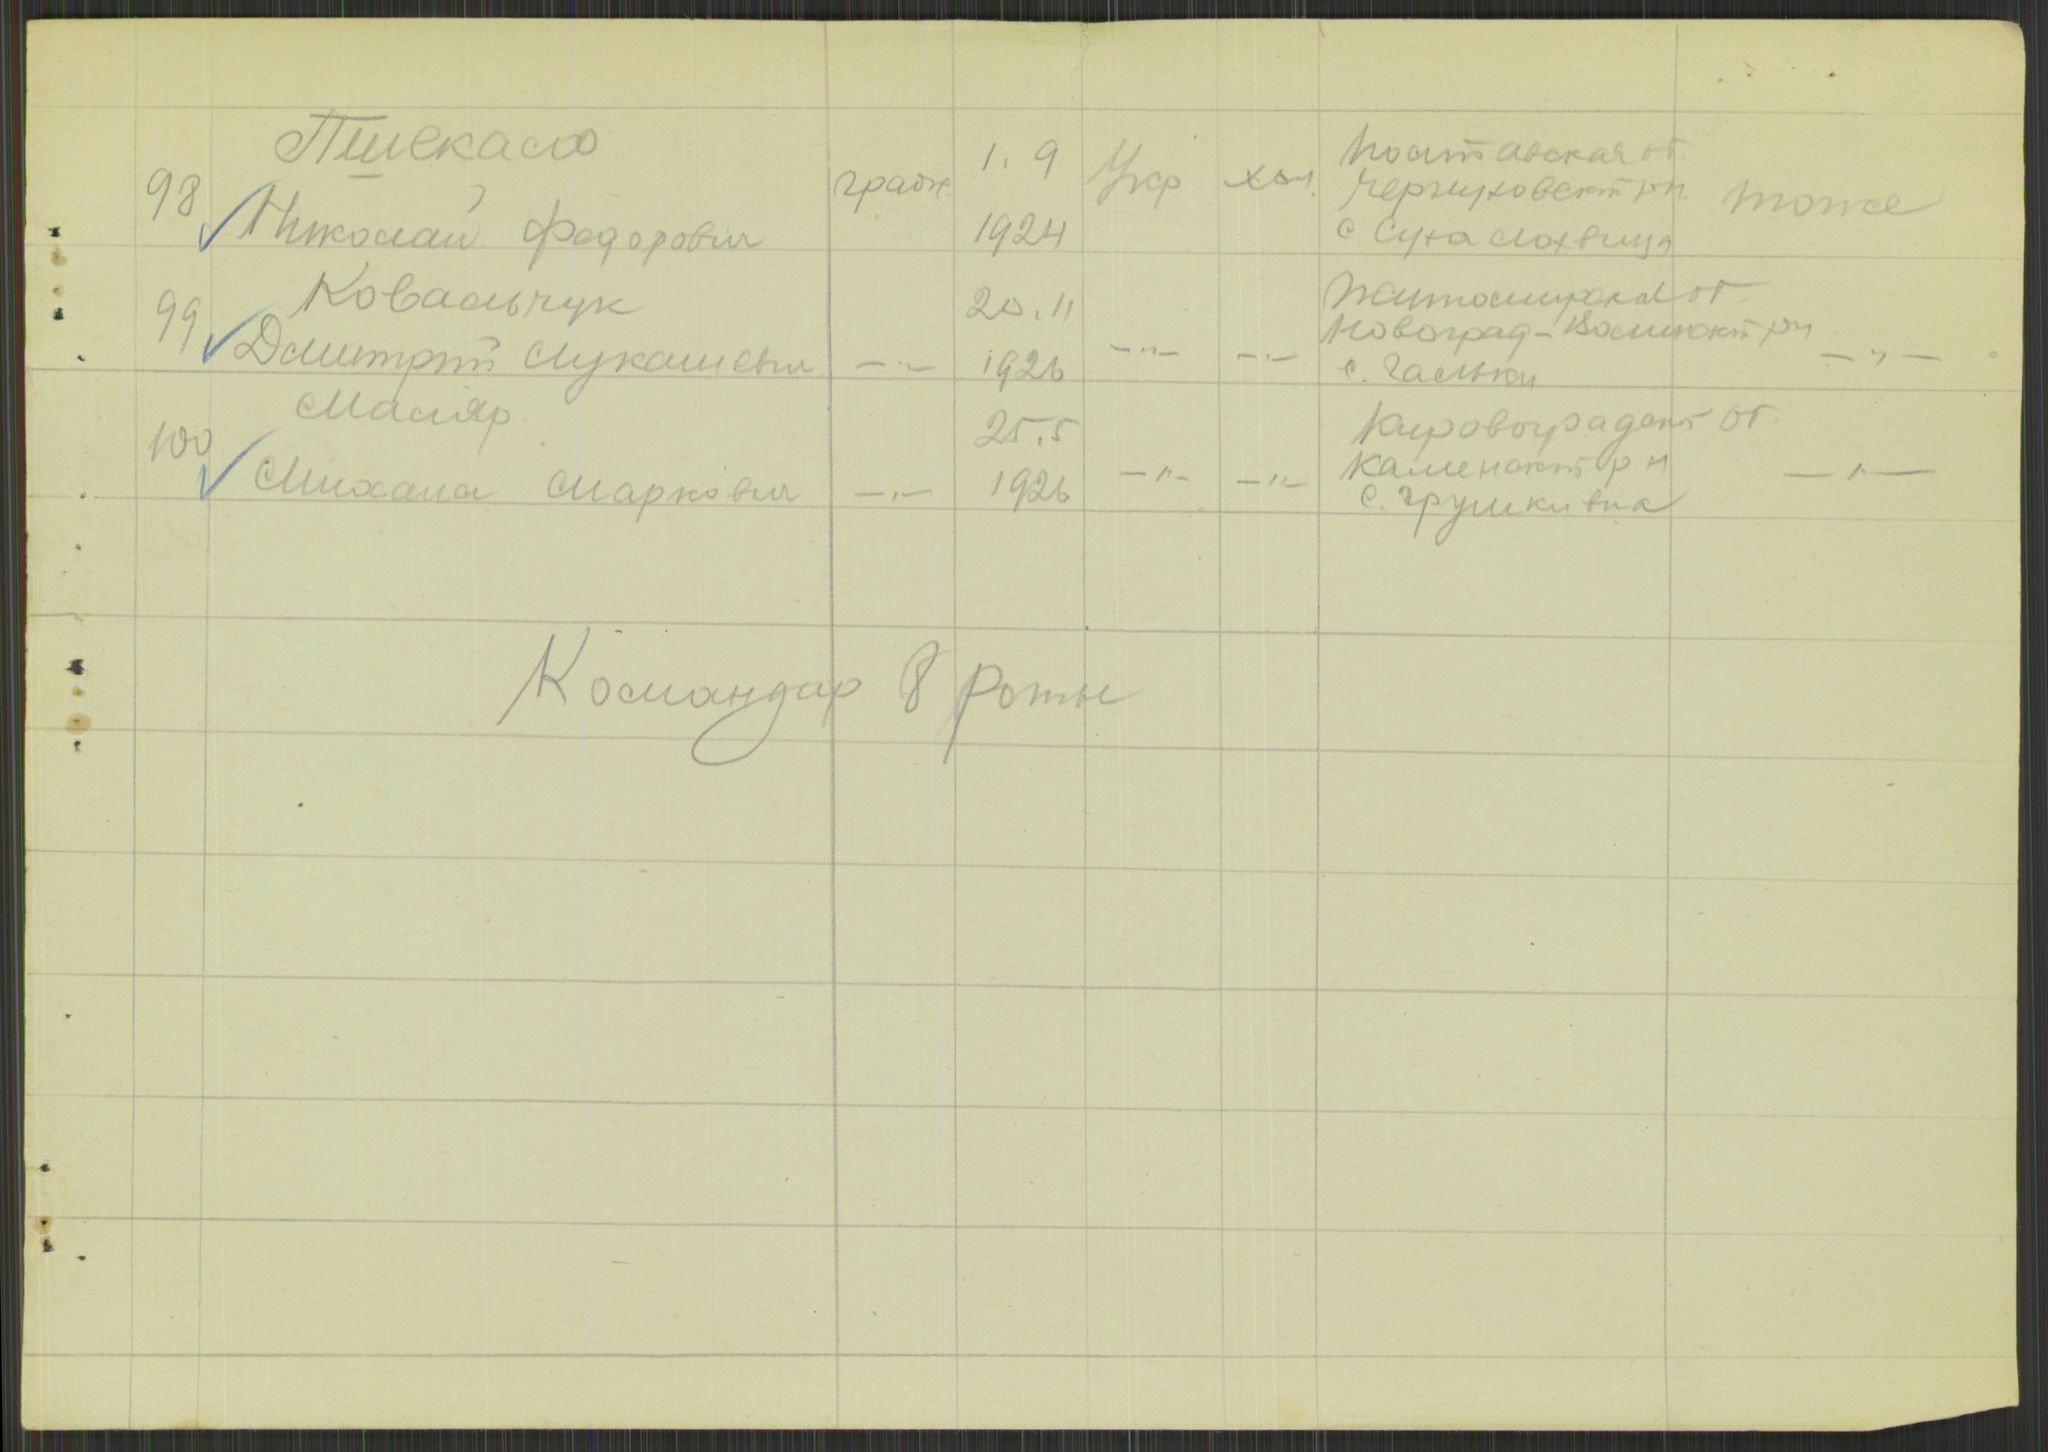 98 Пшекасо
Николай Федорович гражд. 1.9 1924 Укр хол. Полтавская об. Чернуховский рн с Суха Лохвиця тоже
99 Ковальчук
Дмитрий Лукашевич —"— 20.11 1926 —"— —"— Житомирская об. Новоград-Волинский рн с. Гальки —"—
100 Маляр
Михаил Маркович —"— 25.5 1926 —"— —"— Кировоградский об. Каменский рн с. Грушкивка —"—
Командир 8 роты